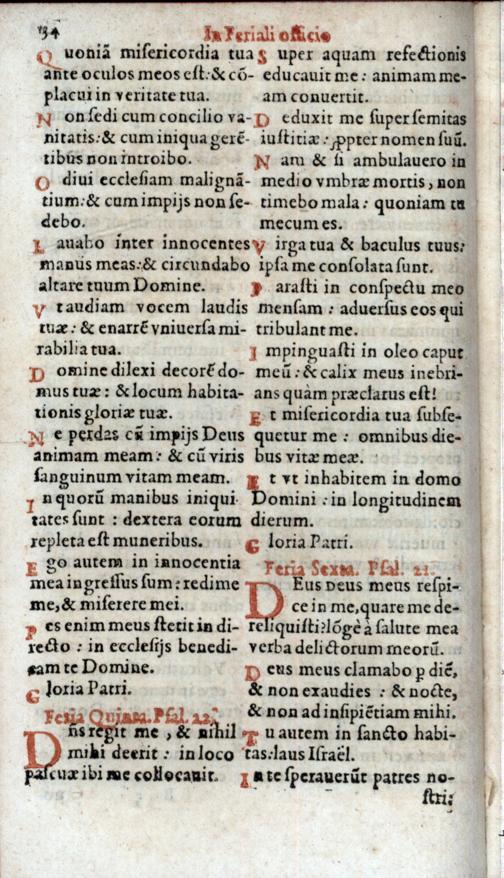 134
In Feriali officio
Quoniã misericordia tua
ante oculos meos est: & cõ-
placui in veritate tua.
Non sedi cum concilio va-
nitatis: & cum iniqua gerẽ-
tibus non introibo.
Odiui ecclesiam malignã-
tium: & cum impijs non se-
debo.
Lauabo inter innocentes
manus meas: & circundabo
altare tuum Domine.
Vt audiam vocem laudis
tuæ: & enarrẽ vniuersa mi-
rabilia tua.
Domine dilexi decorẽ do-
mus tuæ: & locum habita-
tionis gloriæ tuæ.
Ne perdas cũ impijs Deus
animam meam: & cũ viris
sanguinum vitam meam.
In quorũ manibus iniqui-
tates sunt: dextera eorum
repleta est muneribus.
Ego autem in innocentia
mea ingressus sum: redime
me, & miserere mei.
Pes enim meus stetit in di-
recto: in ecclesijs benedi-
cam te Domine.
Gloria Patri.
Feria Quinta. Psal. 22.
Dñs regit me, & nihil
mihi deerit: in loco
pascuæ ibi me collocauit.
Super aquam refectionis
educauit me: animam me-
am conuertit.
Deduxit me super semitas
iustitiæ: ꝓpter nomen suũ.
Nam & si ambulauero in
medio vmbræ mortis, non
timebo mala: quoniam tu
mecum es.
Virga tua & baculus tuus:
ipsa me consolata sunt.
Parasti in conspectu meo
mensam: aduersus eos qui
tribulant me.
Impinguasti in oleo caput
meũ: & calix meus inebri-
ans quàm præclarus est!
Et misericordia tua subse-
quetur me: omnibus die-
bus vitæ meæ.
Et vt inhabitem in domo
Domini: in longitudinem
dierum.
Gloria Patri.
Feria Sexta. Psal. 21.
Deus Deus meus respi-
ce in me, quare me de-
reliquisti? lõgè à salute mea
verba delictorum meorũ.
Deus meus clamabo ꝑ diẽ,
& non exaudies: & nocte,
& non ad insipiẽtiam mihi.
Tu autem in sancto habi-
tas: laus Israël.
In te sperauerũt patres no-
stri: